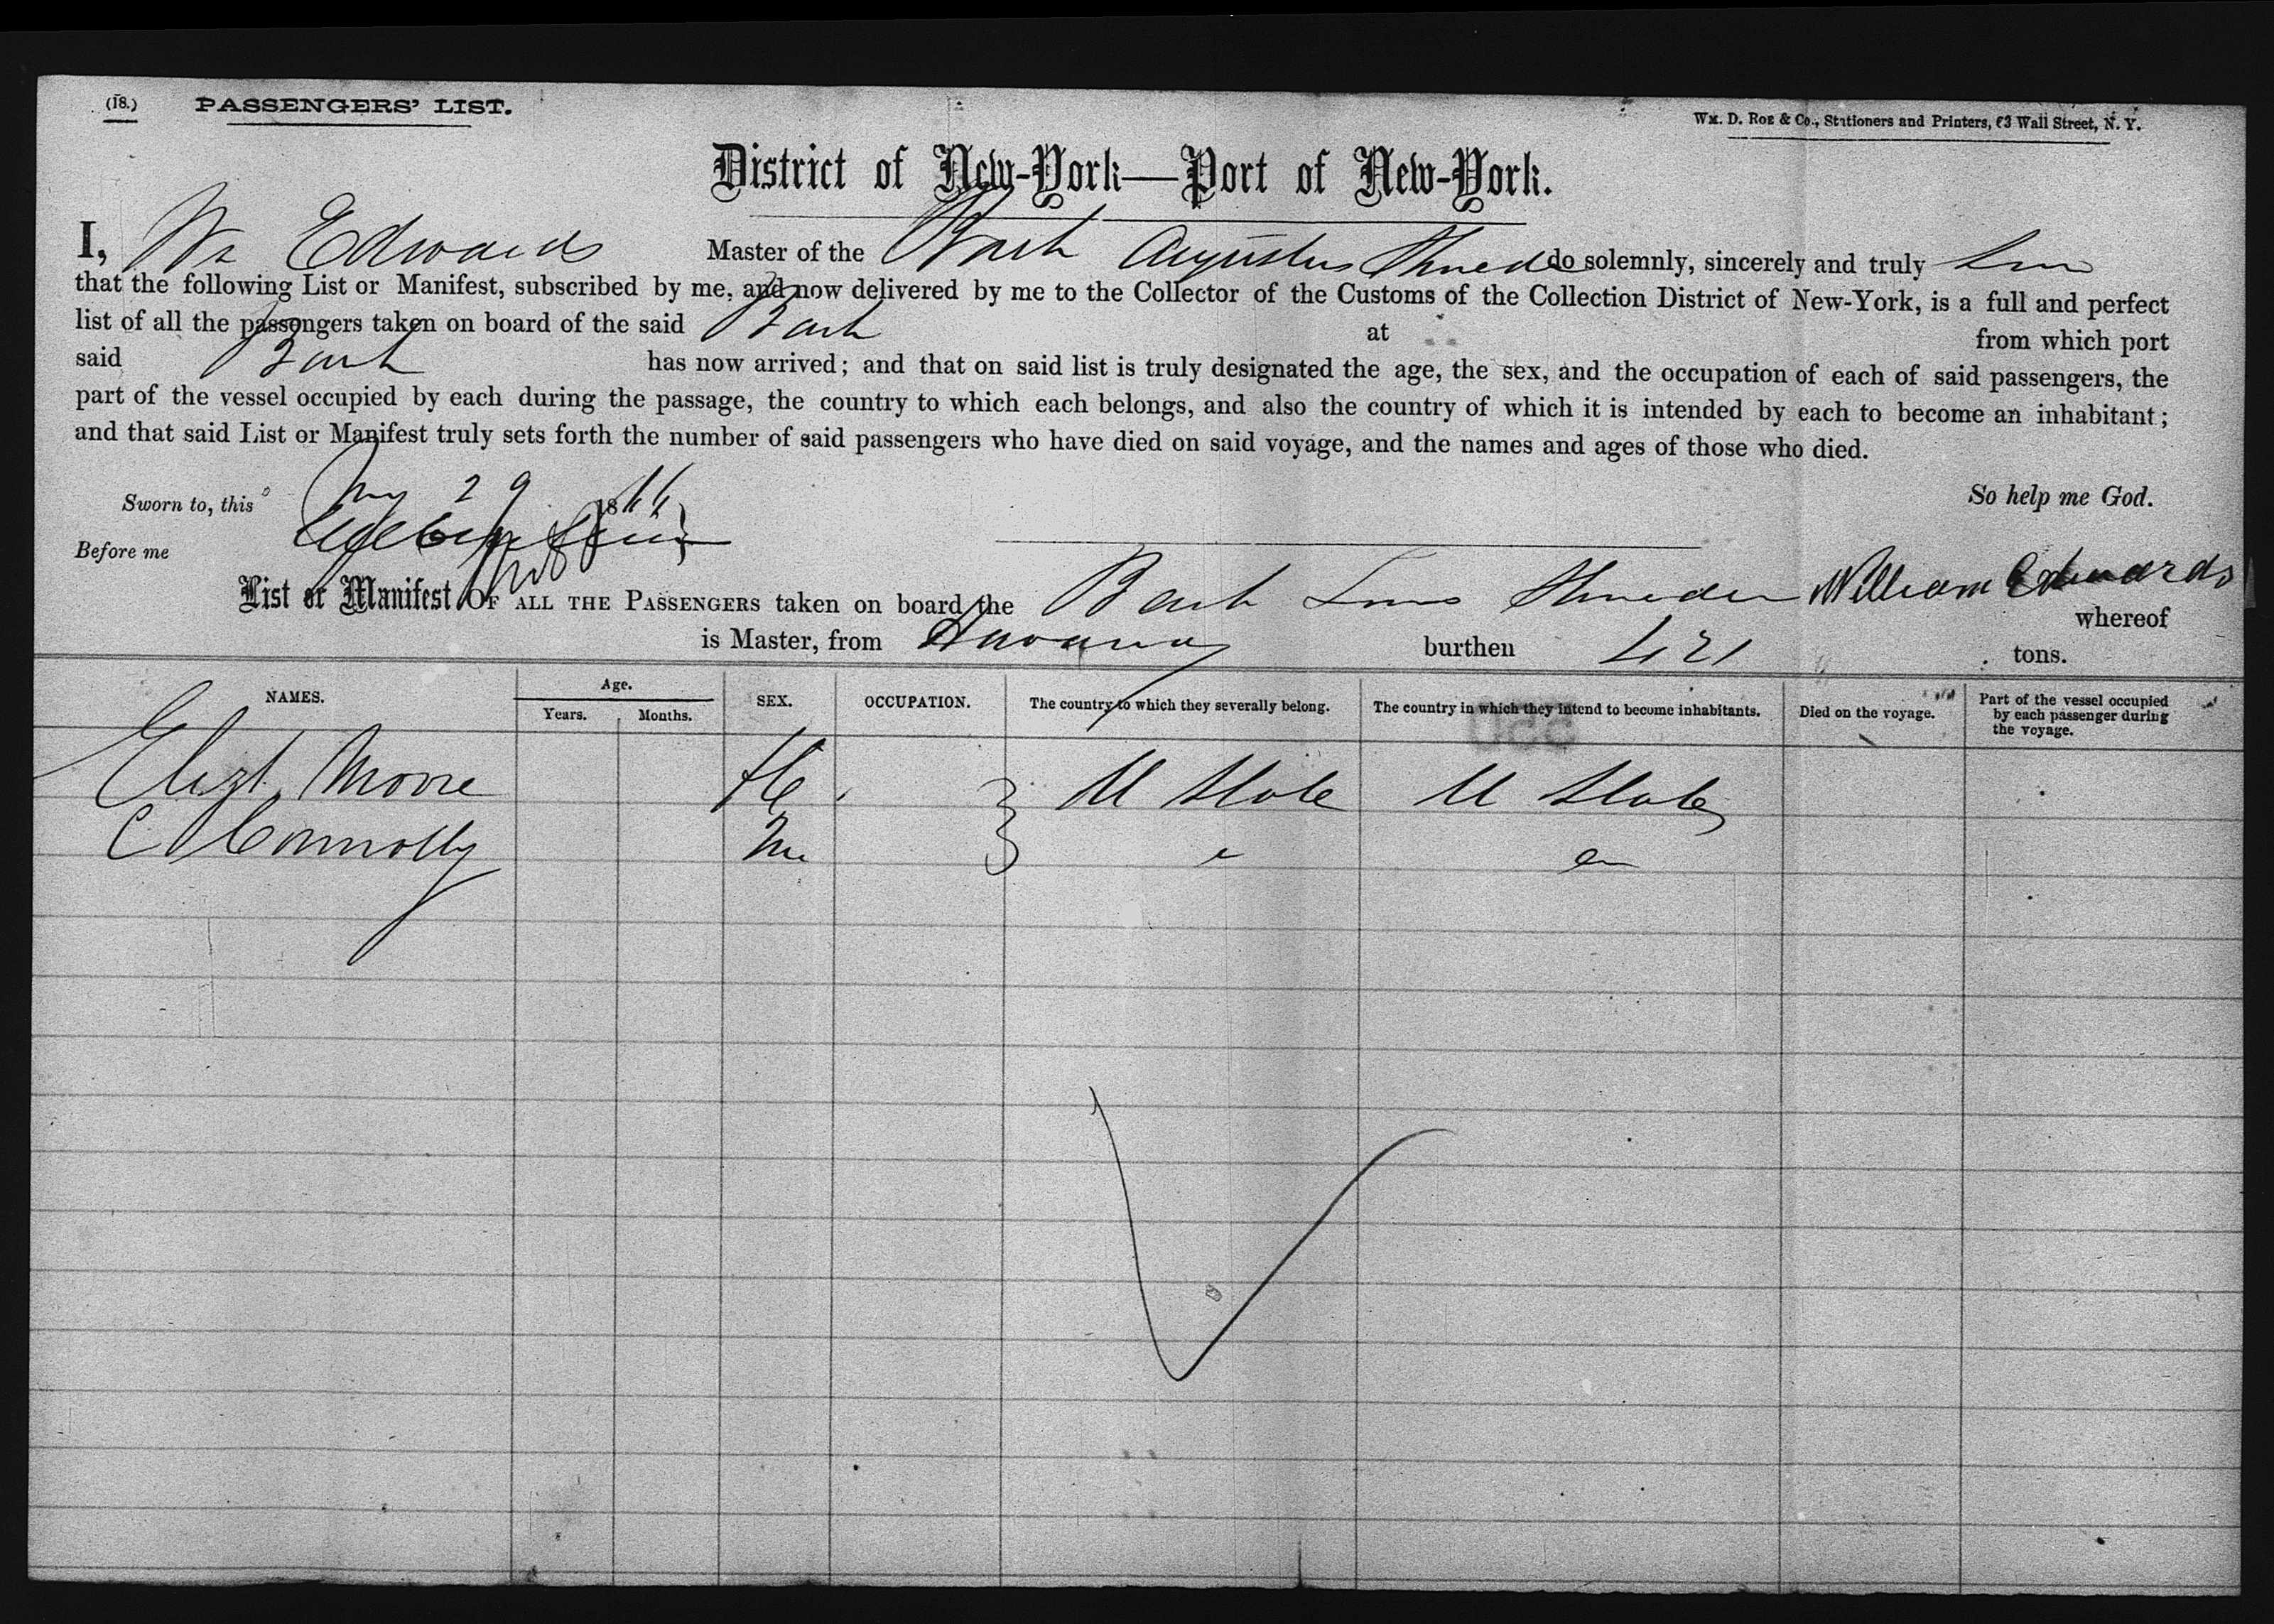 (18.) PASSENGERS' LIST.
Wm. D. Roe & Co., Stationers and Printers, 63 Wall Street, N. Y.
District of New-York—Port of New-York.
I, Wm Edwards Master of the Bark Augustus do solemnly, sincerely and truly
that the following List or Manifest, subscribed by me, and now delivered by me to the Collector of the Customs of the Collection District of New-York, is a full and perfect
list of all the passengers taken on board of the said Bark at from which port
said Bark has now arrived; and that on said list is truly designated the age, the sex, and the occupation of each of said passengers, the
part of the vessel occupied by each during the passage, the country to which each belongs, and also the country of which it is intended by each to become an inhabitant;
and that said List or Manifest truly sets forth the number of said passengers who have died on said voyage, and the names and ages of those who died.
Sworn to, this 29 1866
So help me God.
Before me
List or Manifest OF ALL THE PASSENGERS taken on board the Bark William Edwards whereof
is Master, from Havana burthen tons.
NAMES. Age. Years. Months. SEX. OCCUPATION. The country to which they severally belong. The country in which they intend to become inhabitants. Died on the voyage. Part of the vessel occupied by each passenger during the voyage.
Elizt Moore U State U States
C Connolly M